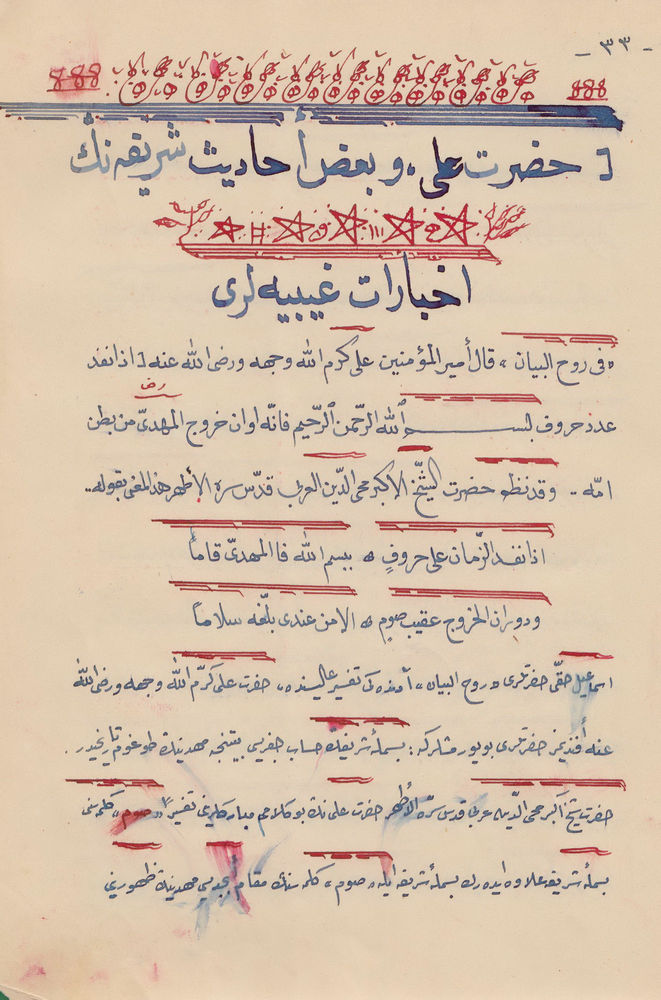 - ٣٣ -
[ حضرت علی، و بعض أحاديث شريفه نك
اخبارات غيبيه لری
«فی روح البيان» قال أمير المؤمنين علی كرم الله وجهه ورضی الله عنه [ اذا نفد
عدد حروف بسم الله الرحمن الرحيم فانّه اوان خروج المهدیّ رض من بطن
امّه .. وقد نظم حضرت الشيخ الاكبر محی الدّين العربی قدّس سره الأطهر هذا المعنی بقوله ..
اذا نفد الزّمان علی حروفٍ ٥ ببسم الله فا المهدیّ قاما
ودوران الخروج عقيب صوم ٥ الا من عندی بلّغه سلاماً
اسماعيل حقّی حضرتلری «روح البيان» آدنده كی تفسير عاليسنده، حضرت علی كرّم الله وجهه ورضی الله
عنه أفنديمز حضرتلری بويورمشلركه: بسملهٔ شريفنك حساب جفريسی بيتنجه مهدينك طوغوم تاريخيدر.
حضرت شيخ اكبر محی الدّين عربی قدس سرّه الأطهر حضرت علی نك بو كلام مباركلرينی تفسيراً «صوم» كلمه سنی
بسملهٔ شريفه علاوه ايده رك بسملهٔ شريفه ايله «صوم» كلمه سنك مقام ابجديسی مهدينك ظهورينی